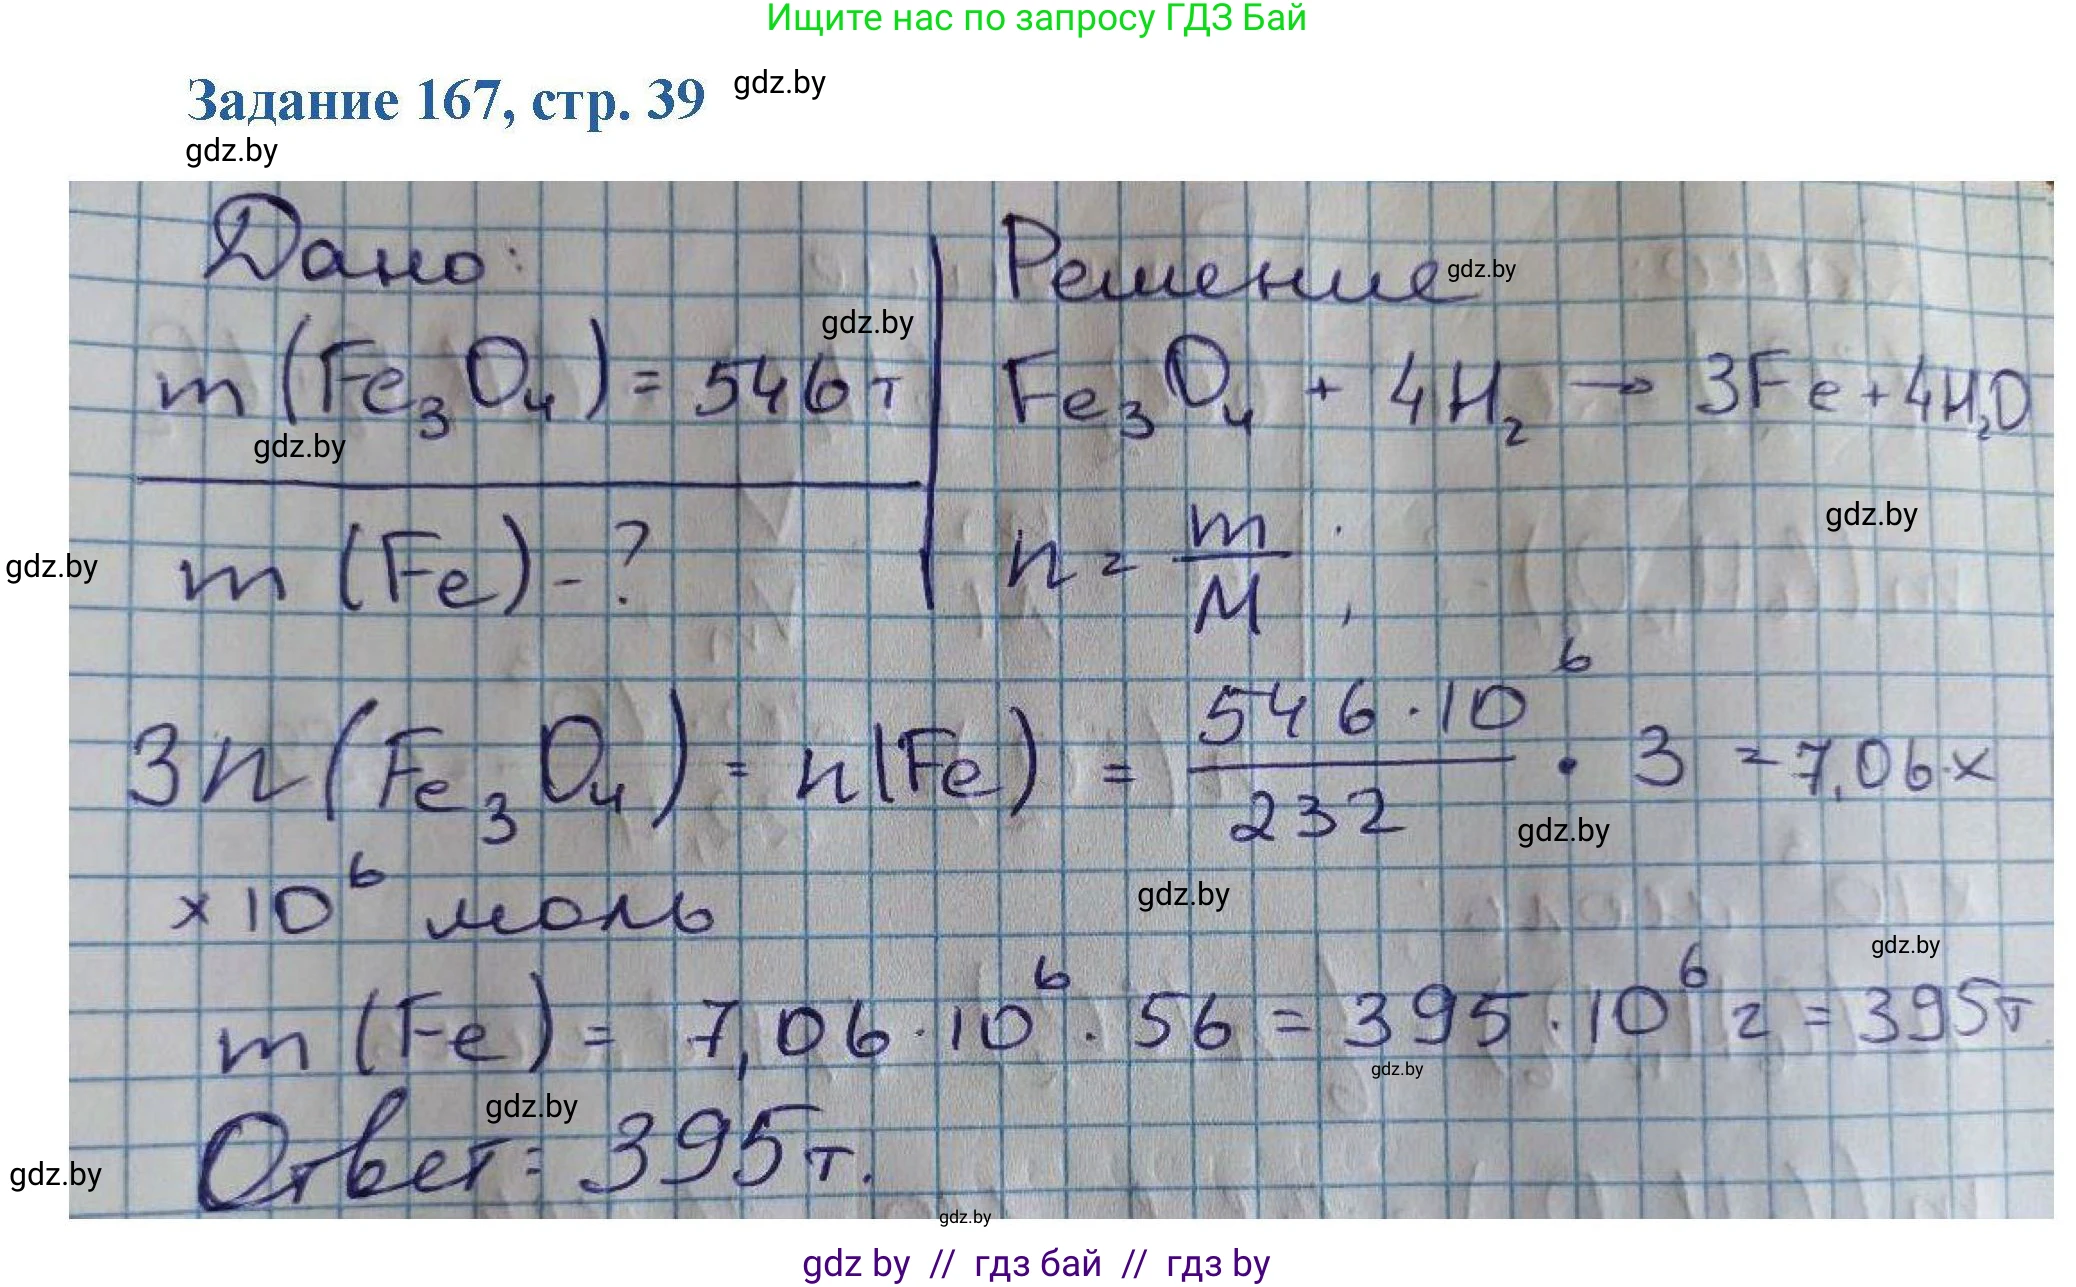 Ищите нас по запросу ГДЗ Бай
Задание 167, стр. 39 gdz.by
gdz.by
Дано: Решение gdz.by
gdz.by
m (Fe₃O₄) = 546 т Fe₃O₄ + 4H₂ → 3Fe + 4H₂O
gdz.by
gdz.by
gdz.by m (Fe) - ? n = m/M ;
3n (Fe₃O₄) = n(Fe) = 546·10⁶/232 · 3 = 7,06 x
gdz.by
x 10⁶ моль gdz.by
gdz.by
m (Fe) = 7,06·10⁶ · 56 = 395·10⁶ г = 395 т
gdz.by
gdz.by
Ответ: 395 т.
gdz.by
gdz.by
gdz by // гдз бай // гдз by